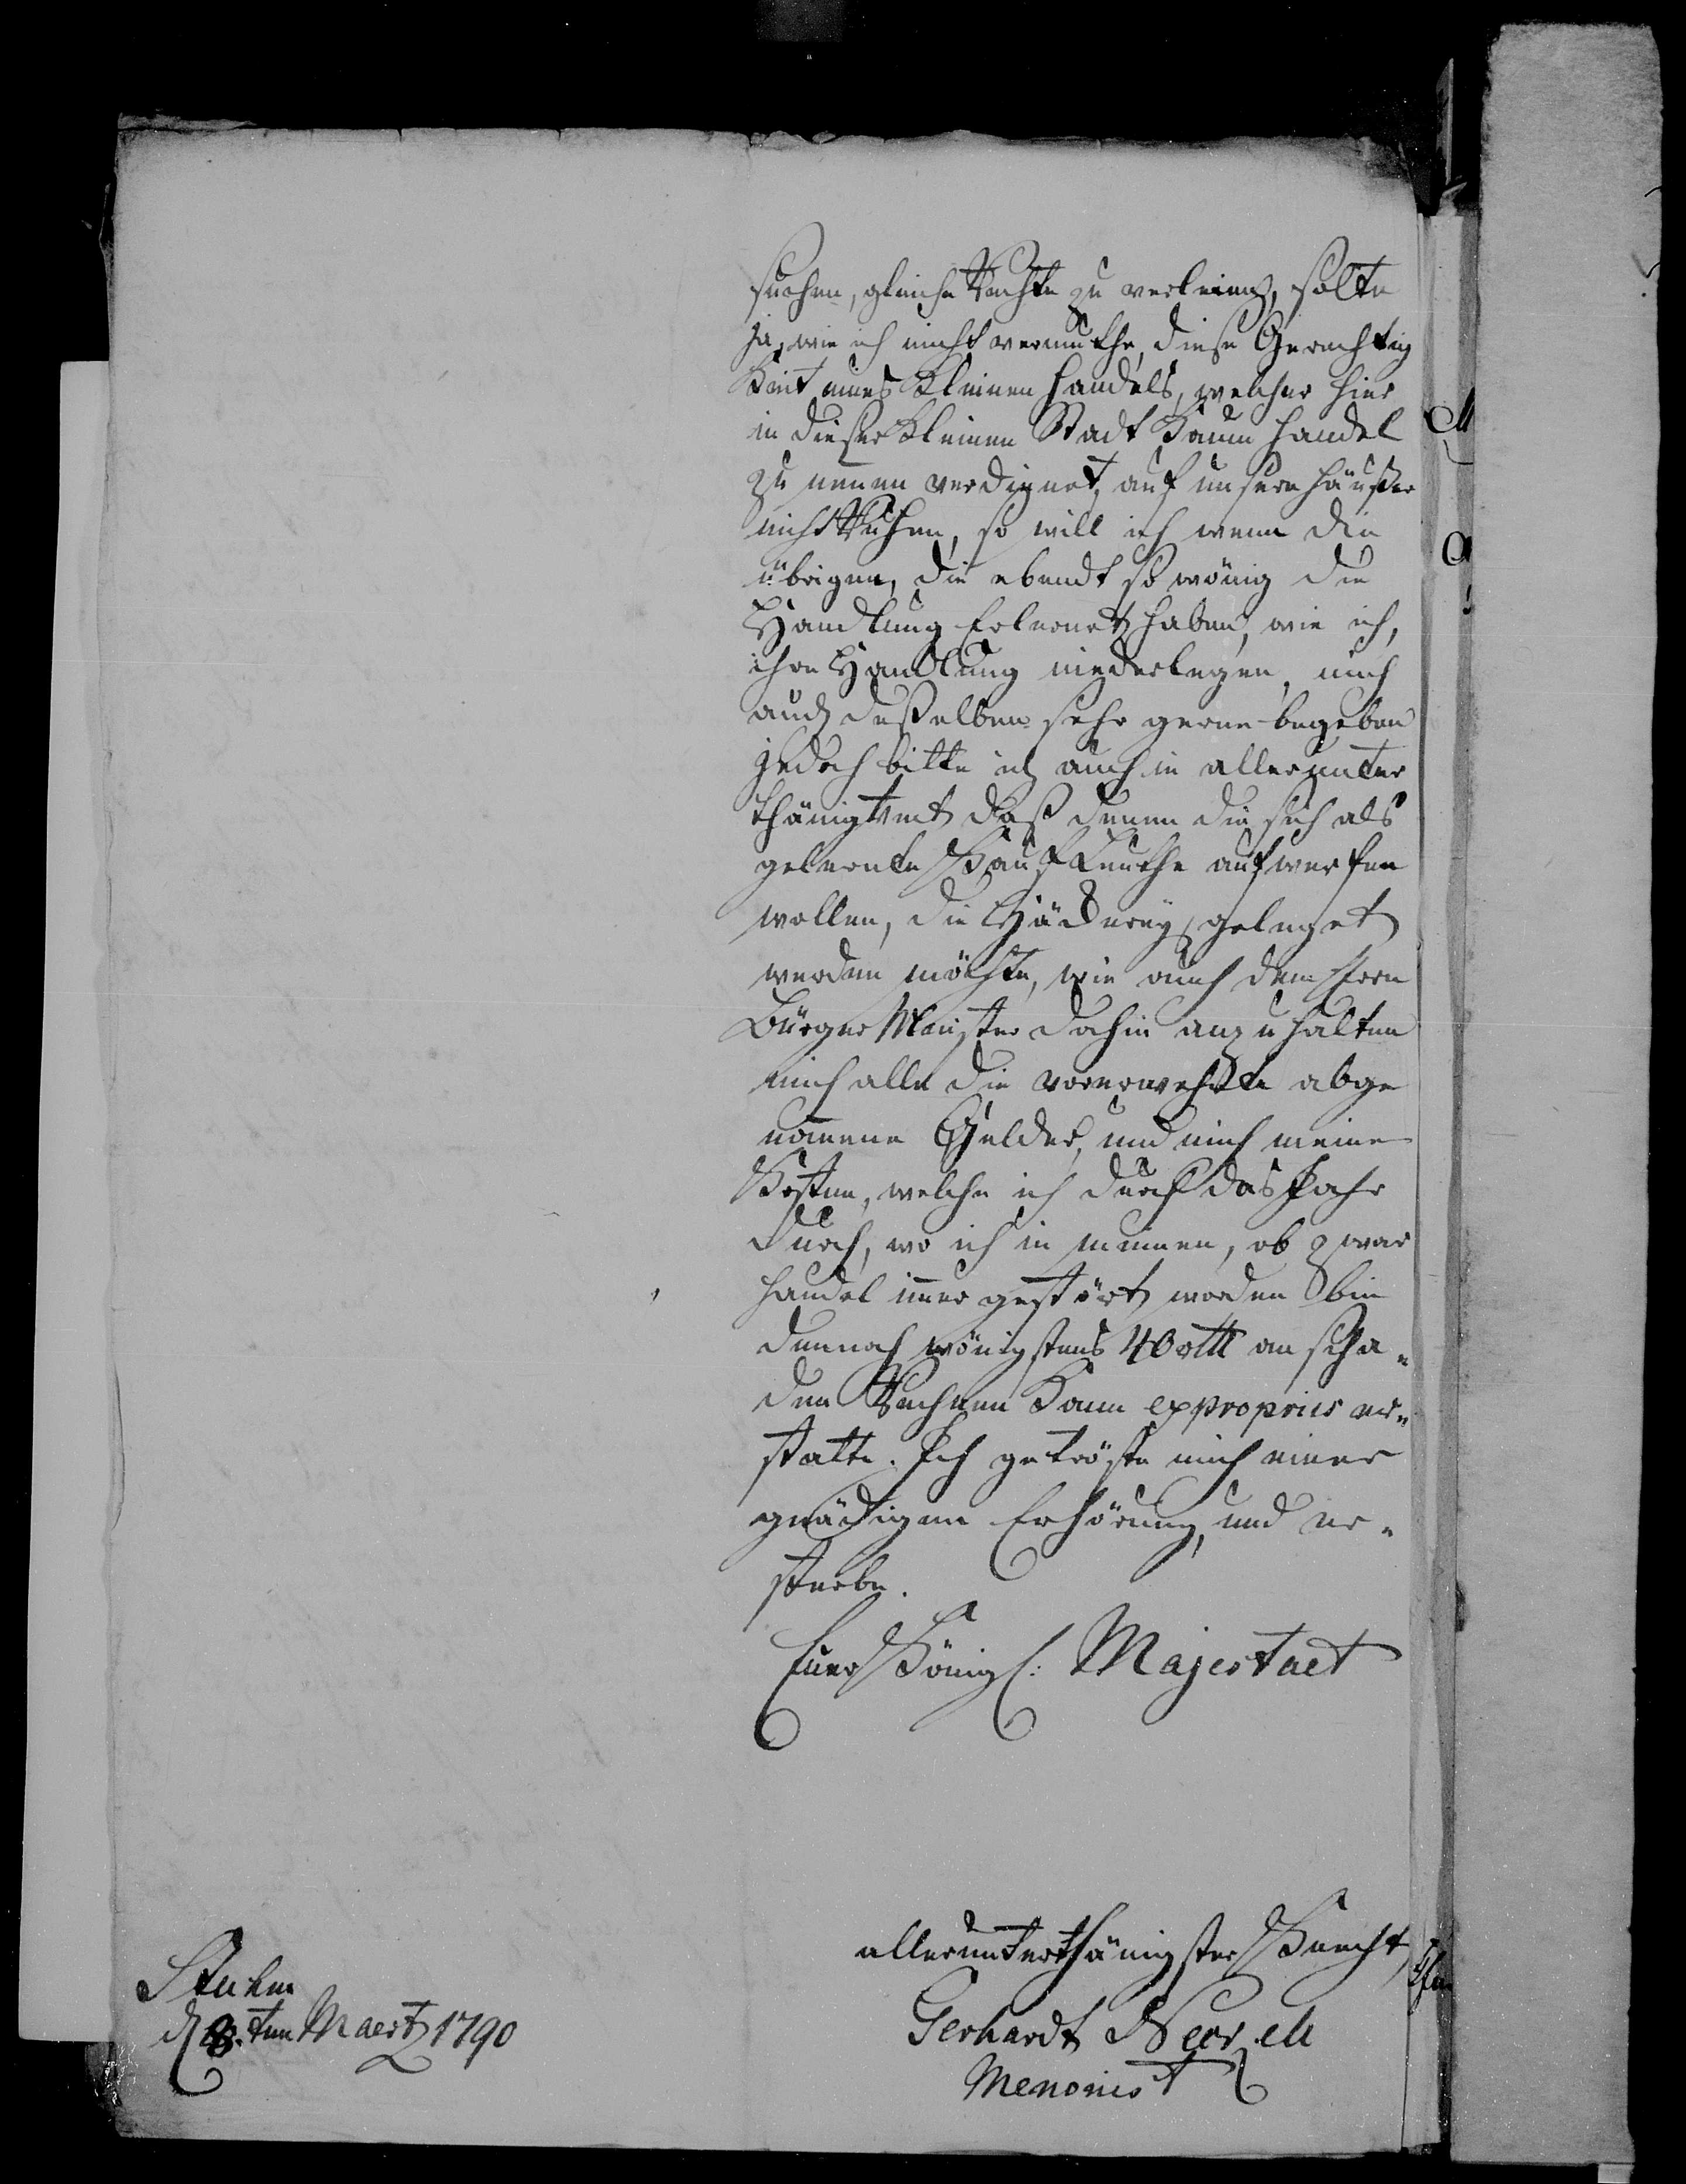 suchen, gleiche Rechte zu verleien, solte
ja, wie ich nicht vermuthe, diese Gerechtig
Keit eines Kleinen Handels, welcher hier
in dieser Kleinen Stadt Kaum Handel
zu nenen verdienet, auf unsere Häußer
nicht Ruhen, so will ich wenn die
übrigen, die ebendt so wönig die
Handlung Erlernet haben, wie ich,
ihre Handlung niederlegen, mich
auch deßelben sehr gerne begeben
jedoch bitte ich auch in allerunter
thänigkeit daß denen die sich als
gelernte Kauf Leuthe aufwerfen
wollen, die Häckerey geleget
werden möchte, wie auch dem Herrn
Bürger Meister dahin anzuhalten
mich alle die vorerwehnte abge
nomene Gelder, und mich meine
Kosten, welche ich durch das Jahr
durch, wo ich in meinen, ob zwar
Handel imer gestört worden bin
dennoch wönigstens 40 rtlr an Scha-
den Rechnen Kann ex propriis er-
statte. Ich getröste mich einer
gnädigen Erhörung, und er-
sterbe.
Euer Königl: Majestaet
allerunterthänigster Knecht
Gerhardt
Menonist
Stuhm
d 8.ten Maertz 1790